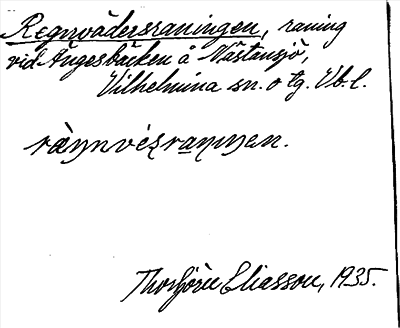 Regnvädersraningen, raning
vid Ångesbäcken å Nästansjö,
Vilhelmina sn. o tg. Vb. l.
ràŋnvézraŋŋen.
Thorbjörn Eliasson, 1935.